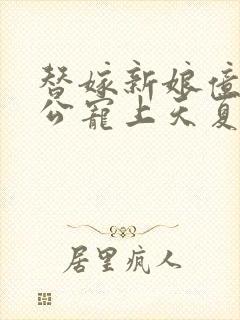 替嫁新娘億
公寵上天夏
居里疯人